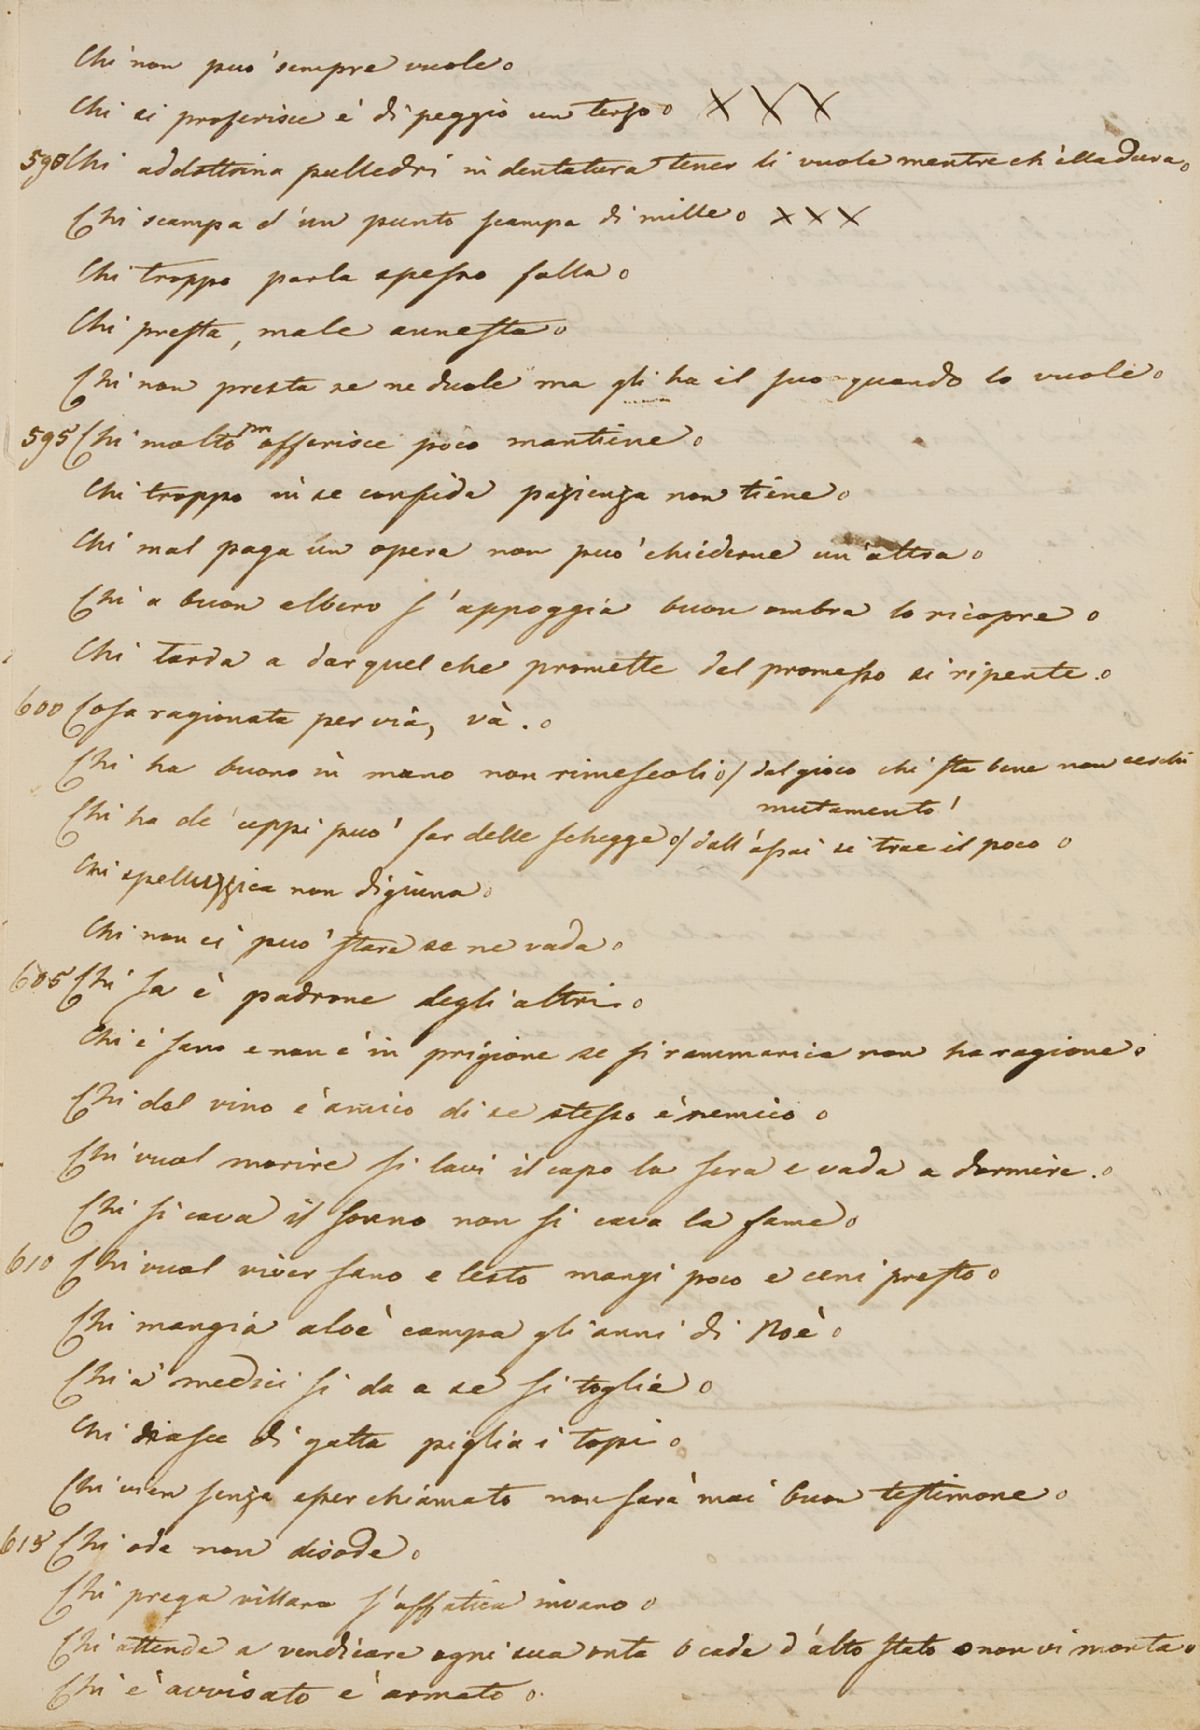 Chi non può sempre vuole.
Chi si proferisce è di peggio un terzo. XXX
590 Chi addottrina pulledri in dentatura tener li vuole mentre ch'ella dura.
Chi scampa d'un punto scampa di mille. XXX
Chi troppo parla spesso falla.
Chi presta, male annesta.
Chi non presta se ne duole ma gli ha il suo quando lo vuole.
595 Chi molto offerisce poco mantiene.
Chi troppo in se confida pazienza non tiene.
Chi mal paga un opera non può chiederne un'altra.
Chi a buon albero s'appoggia buon ombra lo ricopre.
Chi tarda a dar quel che promette del promesso si ripente.
600 Cosa ragionata per via, và.
Chi ha buono in mano non rimescoli / dal gioco chi sta bene non cerchi
mutamento
Chi ha de' ceppi può far delle schegge / dall'assai si trae il poco
Chi spelluzzica non digiuna.
Chi non ci può stare se ne vada.
605 Chi sa è padrone degli altri.
Chi è sano e non è in prigione se si rammarica non ha ragione.
Chi del vino è amico di se stesso è nemico
Chi vuol morire si lavi il capo la sera e vada a dormire.
Chi si cava il sonno non si cava la fame.
610 Chi vuol viver sano e lesto mangi poco e ceni presto.
Chi mangia aloè campa gli anni di Noè.
Chi a' medici si da a se si toglie.
Chi nasce di gatta piglia i topi.
Chi vien senza esser chiamato non sarà mai buon testimone.
615 Chi ode non disode.
Chi prega villano s'affatica invano.
Chi attende a vendicare ogni sua onta o cade d'alto stato o non vi monta.
Chi è avvisato è armato.